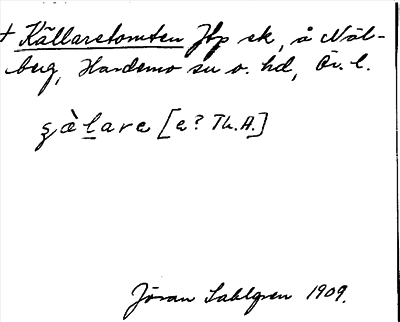 + Källarstomten Jtp sk, å Näl-
berg, Hardemo sn o. hd, Ör. l.
ʒàlare [e? Th.A.]
Jöran Sahlgren 1909.